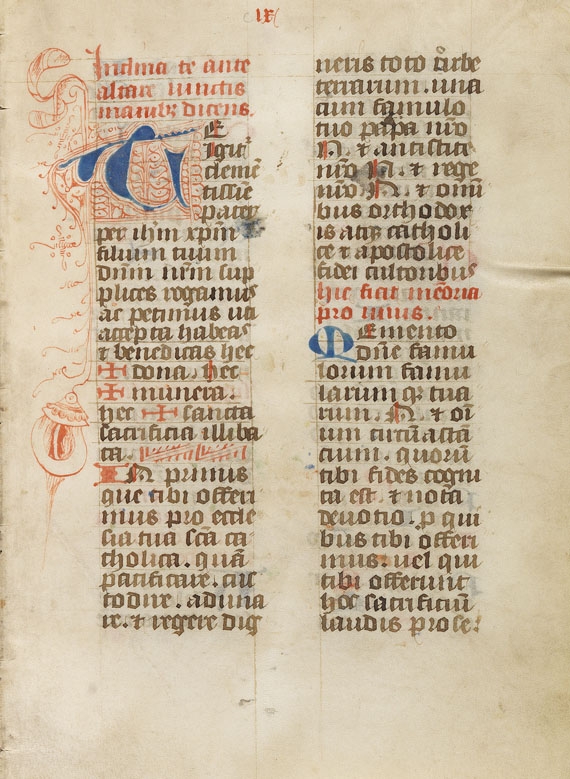 ix
Inclina te ante
altare iunctis
manibꝫ dicens.
TE
Igit᷑
clemē
tissīe
pater
per ih̄m xp̄m
filium tuum
dn̄m nr̄m sup
plices rogamus
ac petimus uti
accepta habeas
⁊ benedicas hec
✠ dona. hec
✠ munera.
hec ✠ sancta
sacrificia illiba
ta.
IN primis
que tibi offeri
mus pro eccle
sia tua scā ca
tholica. quā
pacificare. cus
todire. aduna
re. ⁊ regere dig
neris toto orbe
terrarum. una
cum famulo
tuo papa nr̄o
N. ⁊ antistite
nr̄o N. ⁊ rege
nr̄o N. ⁊ omī
bus orthodox
is atqꝫ catholi
ce ⁊ apostolice
fidei cultoribus
hic ficit mēoria
pro uiuis.
Memento
dn̄e famu
lorum famu
larum qꝫ tua
rum. N. ⁊ oī
um circūastā
cium. quorū
tibi fides cogni
ta est. ⁊ nota
deuotio. ꝓ qui
bus tibi offeri
mus. uel qui
tibi offerunt
hoc sacrificiū
laudis pro se.